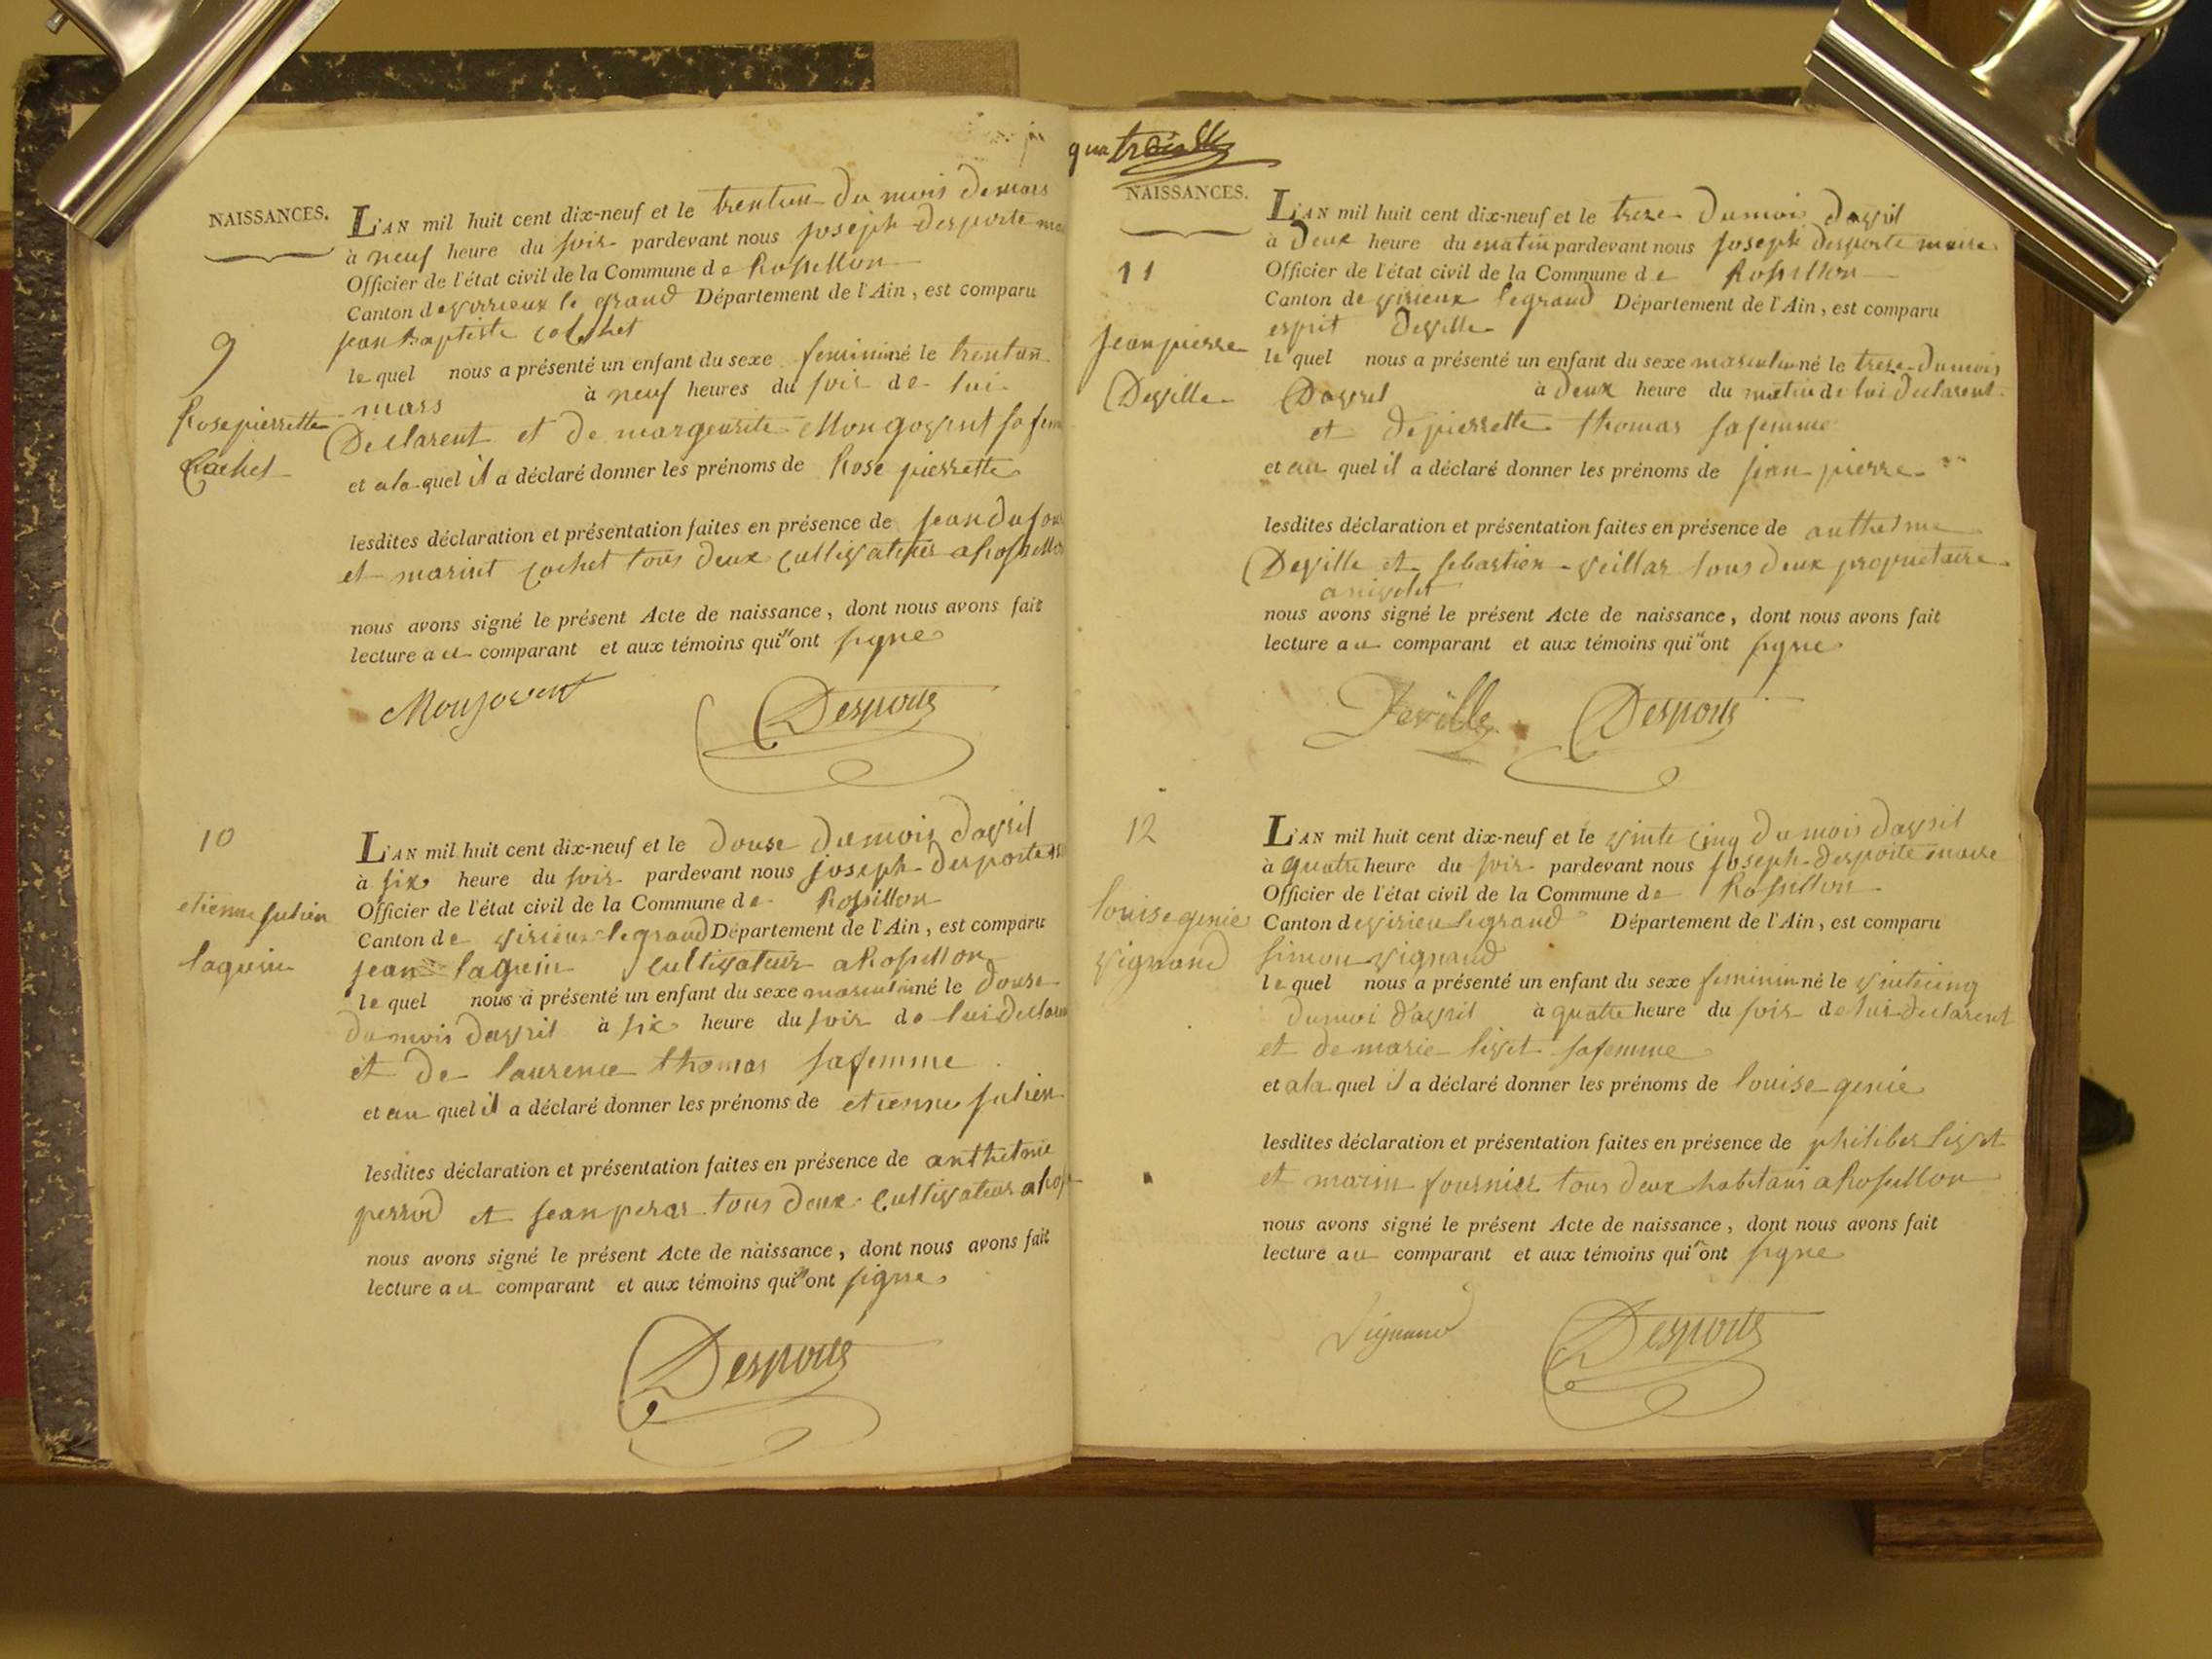 NAISSANCES.
9
Rose pierrette
Cachet
L'AN mil huit cent dix-neuf et le trentun du mois de mars
à neuf heure du soir pardevant nous joseph desporte
Officier de l'état civil de la Commune de Rossillon
Canton de virrieux le grand Département de l'Ain, est comparu
jean Baptiste cochet
le quel nous a présenté un enfant du sexe feminin né le trentun
mars à neuf heures du soir de lui
Declarent et de marguerite Mongovent sa fem
et a la quel il a déclaré donner les prénoms de Rose pierrette
lesdites déclaration et présentation faites en présence de jean dufour
et marint cochet tous deux cultivateurs a Rossillon
nous avons signé le présent Acte de naissance, dont nous avons fait
lecture au comparant et aux témoins qui ont signe
Monjovent Desporte
10
etienne julien
laguin
L'AN mil huit cent dix-neuf et le douse du mois d'avril
à six heure du soir pardevant nous joseph desporte
Officier de l'état civil de la Commune de Rossillon
Canton de virieux le grand Département de l'Ain, est comparu
jean laguin cultivateur a Rossillon
le quel nous a présenté un enfant du sexe masculin né le douse
du mois davril à six heure du soir de lui declaren
et de laurence thomas sa femme
et au quel il a déclaré donner les prénoms de etienne julien
lesdites déclaration et présentation faites en présence de anthelme
perrod et jean peras tous deux cultivateur a Ross
nous avons signé le présent Acte de naissance, dont nous avons fait
lecture au comparant et aux témoins qui ont signe
Desporte
quatre
NAISSANCES.
11
jean pierre
Deville
L'AN mil huit cent dix-neuf et le treze du mois davril
à Deux heure du matin pardevant nous joseph desporte maire
Officier de l'état civil de la Commune de Rossillon
Canton de virieux le grand Département de l'Ain, est comparu
esprit Deville
le quel nous a présenté un enfant du sexe masculin né le treze du mois
Davril à Deux heure du matin de lui declarent
et de pierrette thomas sa femme
et au quel il a déclaré donner les prénoms de jean pierre
lesdites déclaration et présentation faites en présence de anthelme
Deville et sebastien veillas tous deux proprietaire
nous avons signé le présent Acte de naissance, dont nous avons fait
lecture au comparant et aux témoins qui ont signe
Deville Desporte
12
louise genie
vignand
L'AN mil huit cent dix-neuf et le vinte cinq du mois davril
à quatre heure du soir pardevant nous joseph desporte maire
Officier de l'état civil de la Commune de Rossillon
Canton de virieu le grand Département de l'Ain, est comparu
simon vignand
le quel nous a présenté un enfant du sexe feminin né le vintcinq
du moi d'avril à quatre heure du soir de lui declarent
et de marie livet sa femme
et a la quel il a déclaré donner les prénoms de louise genie
lesdites déclaration et présentation faites en présence de philiber livet
et marin fournier tous deux habitans a Rossillon
nous avons signé le présent Acte de naissance, dont nous avons fait
lecture au comparant et aux témoins qui ont signe
Vignand Desporte